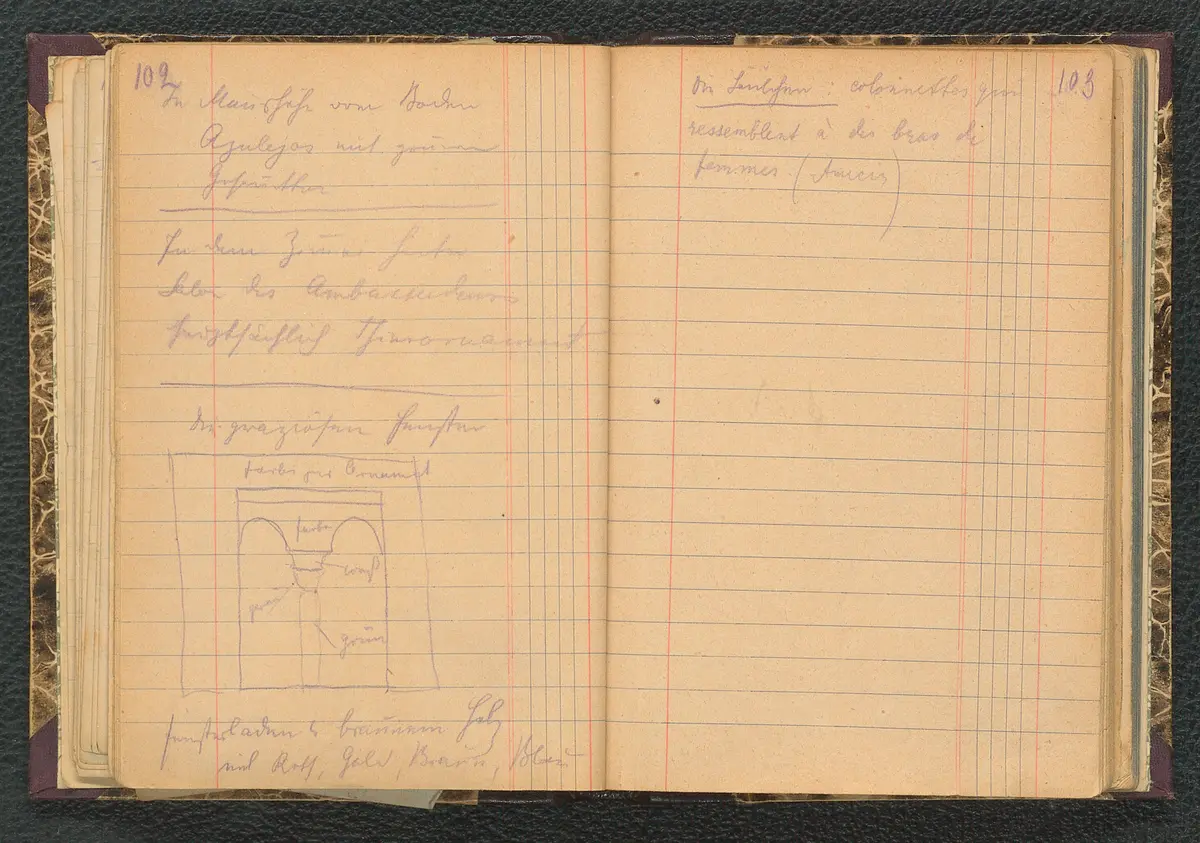 102
In Manshöhe vom Boden
Azulejos mit grünen
In dem Zimmer hinter
Salon des Ambassadeurs
hauptsächlich Thierornament
Die graziösen Fenster
Farbe Ornament
Farbe
weiß
grün
grün
Fensterladen braunem Holz
mit Roth, Gold, Braun, Blau
103
Die Säulchen : colonnettes qui
ressemblent à des bras de
femmes. (Amicis)